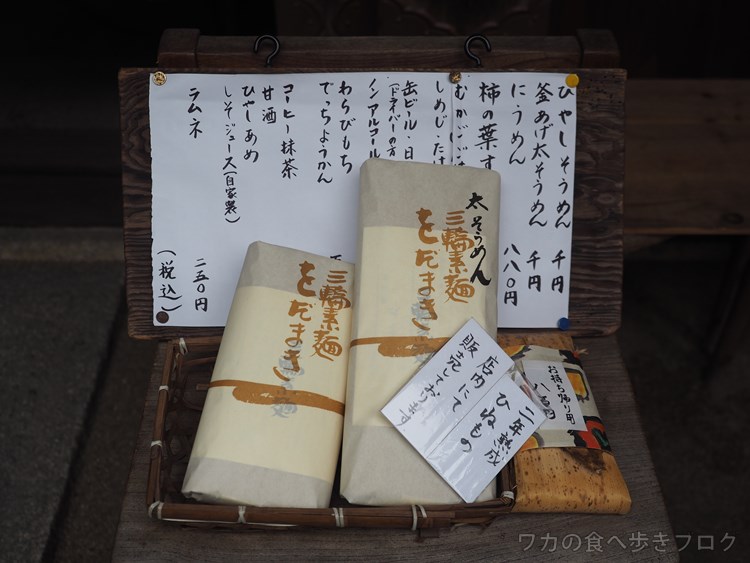 ひやしそうめん 千円
釜あげ太そうめん 千円
にうめん 八八〇円
柿の葉す
むかごご
しめじたけ
缶ビール 日
(ドライバーの方
ノンアルコール
わらびもち
でっちようかん
コーヒー 抹茶
甘酒
ひやしあめ
しそジュース(自家製)
ラムネ 二五〇円
(税込)
太そうめん
三輪素麺
をだまき
三輪素麺
をだまき
二年熟成
ひねもの
店内にて
販売しております
お持ち帰り用
ワカの食べ歩きブログ